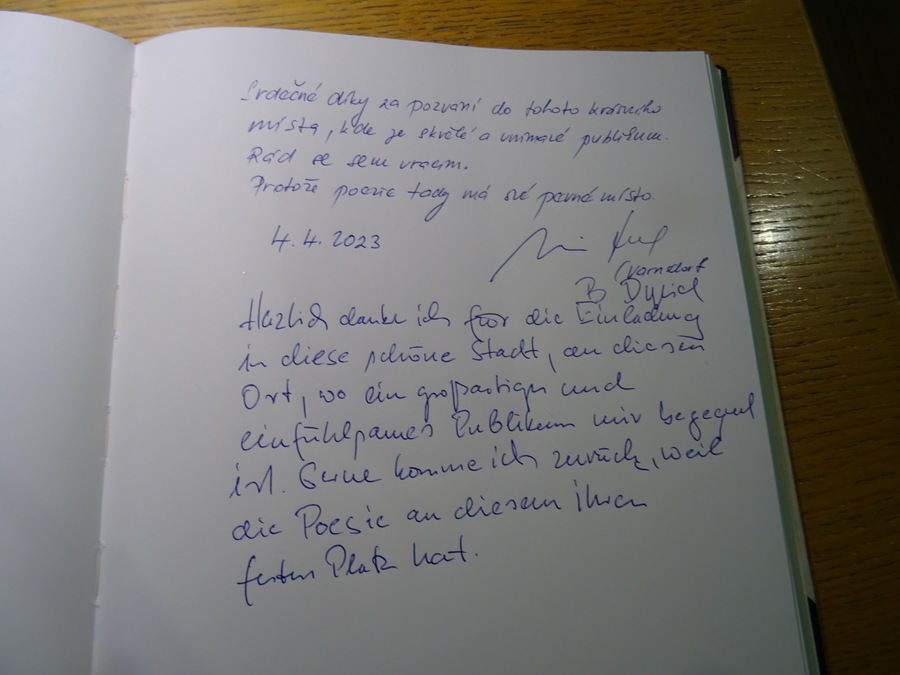 Srdečné díky za pozvání do tohoto krásného
místa, kde je skvělé a vnímavé publikum.
Rád se sem vracím.
Protože poezie tady má své pevné místo.
4. 4. 2023
(Varnsdorf
B
Herzlich danke ich für die Einladung
in diese schöne Stadt, an diesen
Ort, wo ein großartiges und
einfühlsames Publikum mir begegnet
ist. Gerne komme ich zurück, weil
die Poesie an diesem ihren
festen Platz hat.